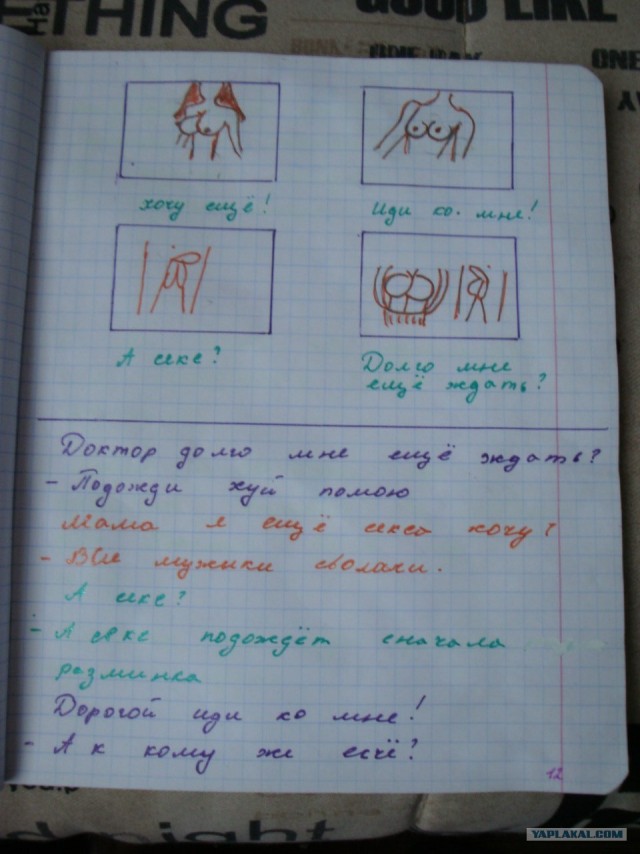 THING
GOOD LIKE
ONE DAY
ONE
хочу ещё!
Иди ко. мне!
А секс?
Долго мне
ещё ждать?
Доктор долго мне ещё ждать?
- Подожди хуй помою
Мама я ещё секса хочу!
- Все мужыки сволачи.
А секс?
- А секс подождёт сначала
разминка
Дорогой иди ко мне!
- А к кому же есчё?
12
YAPLAKAL.COM